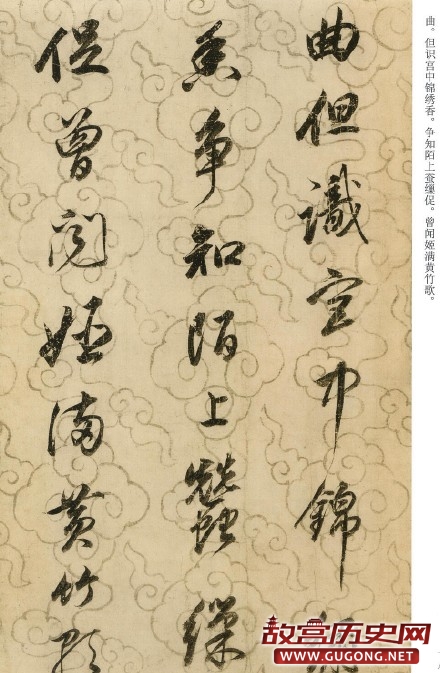 曲。但识宫中锦绣香。争知陌上蚕缫促。曾闻姬满黄竹歌。
曲但識宫中錦繡
香争知陌上蠶繅
促曾聞姬滿黄竹歌
故宫历史网
WWW.GUGONG.NET